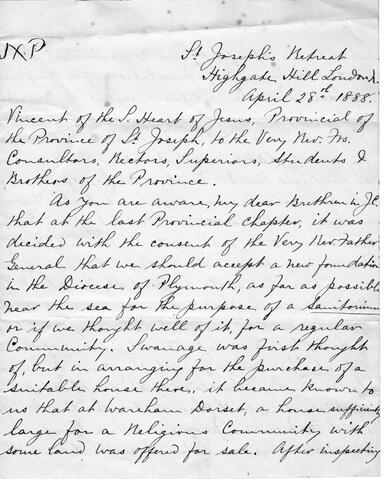 JXP
St Joseph's Retreat
Highgate Hill London N.
April 28th 1888.
Vincent of the S. Heart of Jesus, Provincial of
the Province of St Joseph, to the Very Rev. Frs.
Consultors, Rectors, Superiors, Students &
Brothers of the Province.
As you are aware, my dear Brethren in J.C.
that at the last Provincial Chapter, it was
decided with the consent of the Very Rev. Father
General that we should accept a new foundation
in the Diocese of Plymouth, as far as possible
near the sea for the purpose of a Sanitorium
or if we thought well of it, for a regular
Community. Swanage was first thought
of, but in arranging for the purchase of a
suitable house there, it became known to
us that at Wareham Dorset, a house sufficiently
large for a Religious Community with
some land was offered for sale. After inspecting